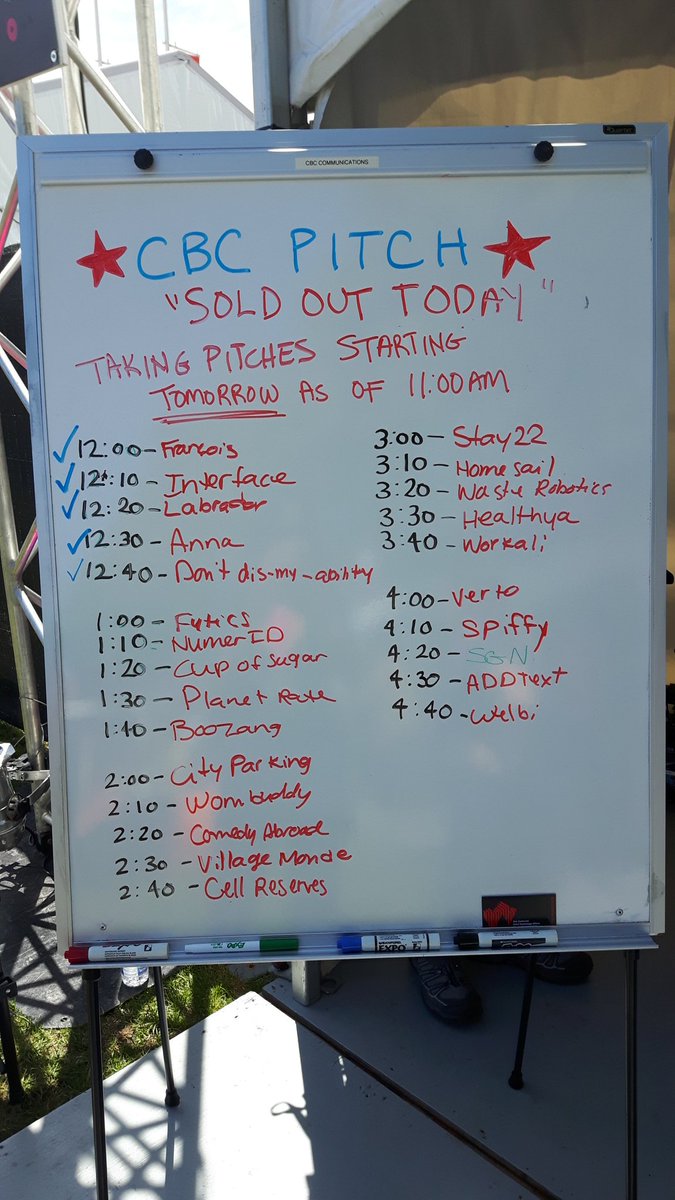 CBC COMMUNICATIONS
CBC PITCH
"SOLD OUT TODAY"
TAKING PITCHES STARTING
TOMORROW AS OF 11:00AM
12:00-Francois
12:10-Interface
12:20-Labrador
12:30-Anna
12:40-Don't dis-my-ability
1:00-Fytics
1:10-NumerID
1:20-Cup of sugar
1:30-Planet Route
1:40-Boozang
2:00-City Parking
2:10-Wombuddy
2:20-Comedy Abroad
2:30-Village Monde
2:40-Cell Reserves
3:00-Stay22
3:10-Homesail
3:20-Waste Robotics
3:30-Healthya
3:40-Workali
4:00-Verto
4:10-Spiffy
4:20-SGN
4:30-ADDText
4:40-Welbi
EXPO
EXPO